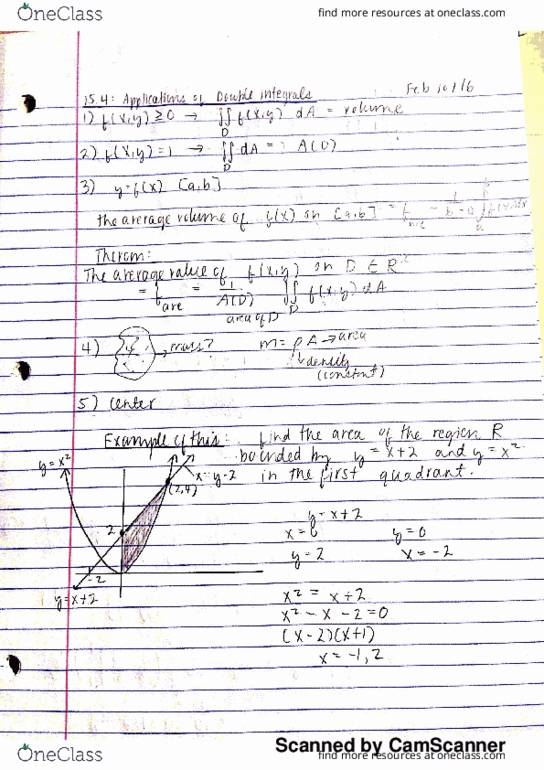 OneClass
find more resources at oneclass.com
Feb 10/16
15.4: Applications of Double integrals
1) f(x,y) ≥ 0 → ∬_D f(x,y) dA = volume
2) f(x,y) = 1 → ∬_D dA = A(D)
3) y = f(x) [a,b]
the average volume of f(x) on [a,b] = f_ave = 1/(b-a) ∫_a^b f(x)dx
Therom:
The average value of f(x,y) on D ∈ R²
= f_ave = 1/A(D) ∬_D f(x,y) dA
area of D
4) mass? m = ρA → area
density
(constant)
5) center
Example of this: find the area of the region R
bounded by y = x+2 and y = x²
in the first quadrant.
y = x²
x = y-2
(2,4)
2
-2
y = x+2
y = x+2
x = 0 y = 0
y = 2 x = -2
x² = x+2
x² - x - 2 = 0
(x-2)(x+1)
x = -1, 2
Scanned by CamScanner
OneClass
find more resources at oneclass.com